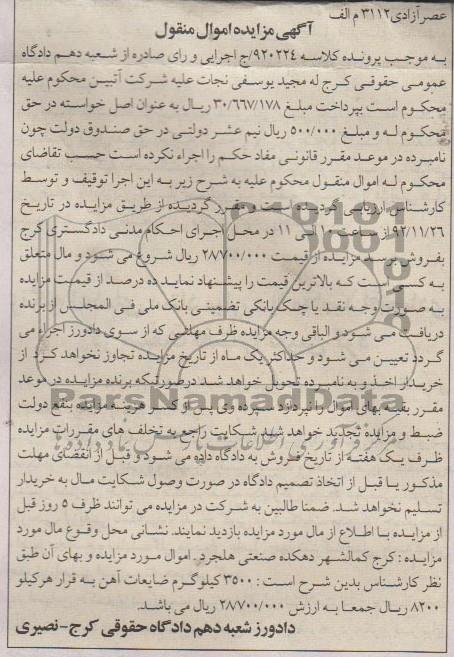 عصر آزادی ۳۱۱۲ م الف
آگهی مزایده اموال منقول
به موجب پرونده کلاسه ۹۲۰۲۲۴/ج اجرایی و رای صادره از شعبه دهم دادگاه
عمومی حقوقی کرج له مجید یوسفی نجات علیه شرکت آتبین محکوم علیه
محکوم است بپرداخت مبلغ ۳۰/۶۶۷/۱۷۸ ریال به عنوان اصل خواسته در حق
محکوم له و مبلغ ۵۰۰/۰۰۰ ریال نیم عشر دولتی در حق صندوق دولت چون
نامبرده در موعد مقرر قانونی مفاد حکم را اجراء نکرده است حسب تقاضای
محکوم له اموال منقول محکوم علیه به شرح زیر به این اجرا توقیف و توسط
کارشناس ارزیابی گردیده است و مقرر گردیده از طریق مزایده در تاریخ
۹۲/۱۱/۲۶ از ساعت ۱۰ الی ۱۱ در محل اجرای احکام مدنی دادگستری کرج
بفروش برسد مزایده از قیمت ۲۸۷۰۰/۰۰۰ ریال شروع می شود و مال متعلق
به کسی است که بالاترین قیمت را پیشنهاد نماید ده درصد از قیمت مزایده
به صورت وجه نقد یا چک بانکی تضمینی بانک ملی فی المجلس از برنده
دریافت می شود و الباقی وجه مزایده ظرف مهلتی که از سوی دادورز اجراء می
گردد تعیین می شود و حداکثر یک ماه از تاریخ مزایده تجاوز نخواهد کرد از
خریدار اخذ و به نامبرده تحویل خواهد شد درصورتیکه برنده مزایده در موعد
مقرر بقیه بهای اموال را نپردازد سپرده وی پس از کسر هزینه مزایده بنفع دولت
ضبط و مزایده تجدید خواهد شد شکایت راجع به تخلف های مقررات مزایده
ظرف یک هفته از تاریخ فروش به دادگاه داده می شود و قبل از انقضای مهلت
مذکور یا قبل از اتخاذ تصمیم دادگاه در صورت وصول شکایت مال به خریدار
تسلیم نخواهد شد. ضمنا طالبین به شرکت در مزایده می توانند ظرف ۵ روز قبل
از مزایده با اطلاع از مال مورد مزایده بازدید نمایند. نشانی محل وقوع مال مورد
مزایده : کرج کمالشهر دهکده صنعتی هلجرد . اموال مورد مزایده و بهای آن طبق
نظر کارشناس بدین شرح است : ۳۵۰۰ کیلوگرم ضایعات آهن به قرار هرکیلو
۸۲۰۰ ریال جمعا به ارزش ۲۸۷۰۰/۰۰۰ ریال می باشد.
دادورز شعبه دهم دادگاه حقوقی کرج-نصیری
ParsNamadData